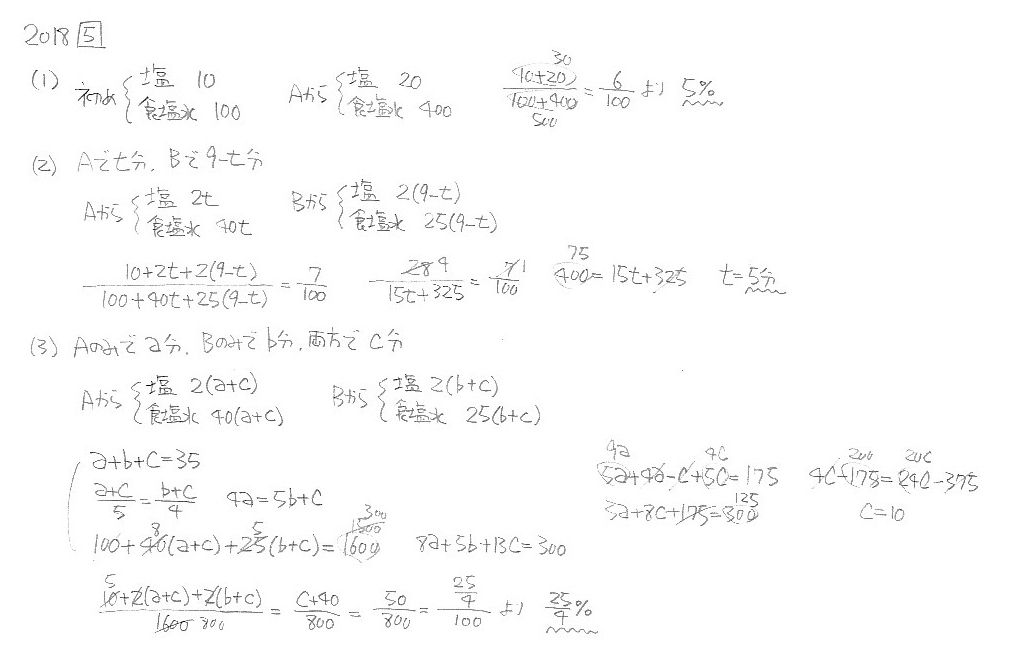 2018 5
(1) 初め { 塩 10 食塩水 100 Aから { 塩 20 食塩水 400 (10+20)/(100+400) = 6/100 より 5% 30 500
(2) Aでt分, Bで9-t分
Aから { 塩 2t 食塩水 40t Bから { 塩 2(9-t) 食塩水 25(9-t)
(10+2t+2(9-t))/(100+40t+25(9-t)) = 7/100 28 4/(15t+325) = 7 1/100 75 400=15t+325 t=5分
(3) Aのみでa分, Bのみでb分, 両方でc分
Aから { 塩 2(a+c) 食塩水 40(a+c) Bから { 塩 2(b+c) 食塩水 25(b+c)
a+b+c=35
(a+c)/5 = (b+c)/4 4a=5b+c
100+40(a+c)+25(b+c)=1600 8 5 1500 300 8a+5b+13c=300
5a+4a-c+5c=175 4a 4c 4c+175=24c-375 200 20c
3a+8c+175=300 125 c=10
(10+2(a+c)+2(b+c))/1600 5 800 = (c+40)/800 = 50/800 = (25/4)/100 より 25/4%